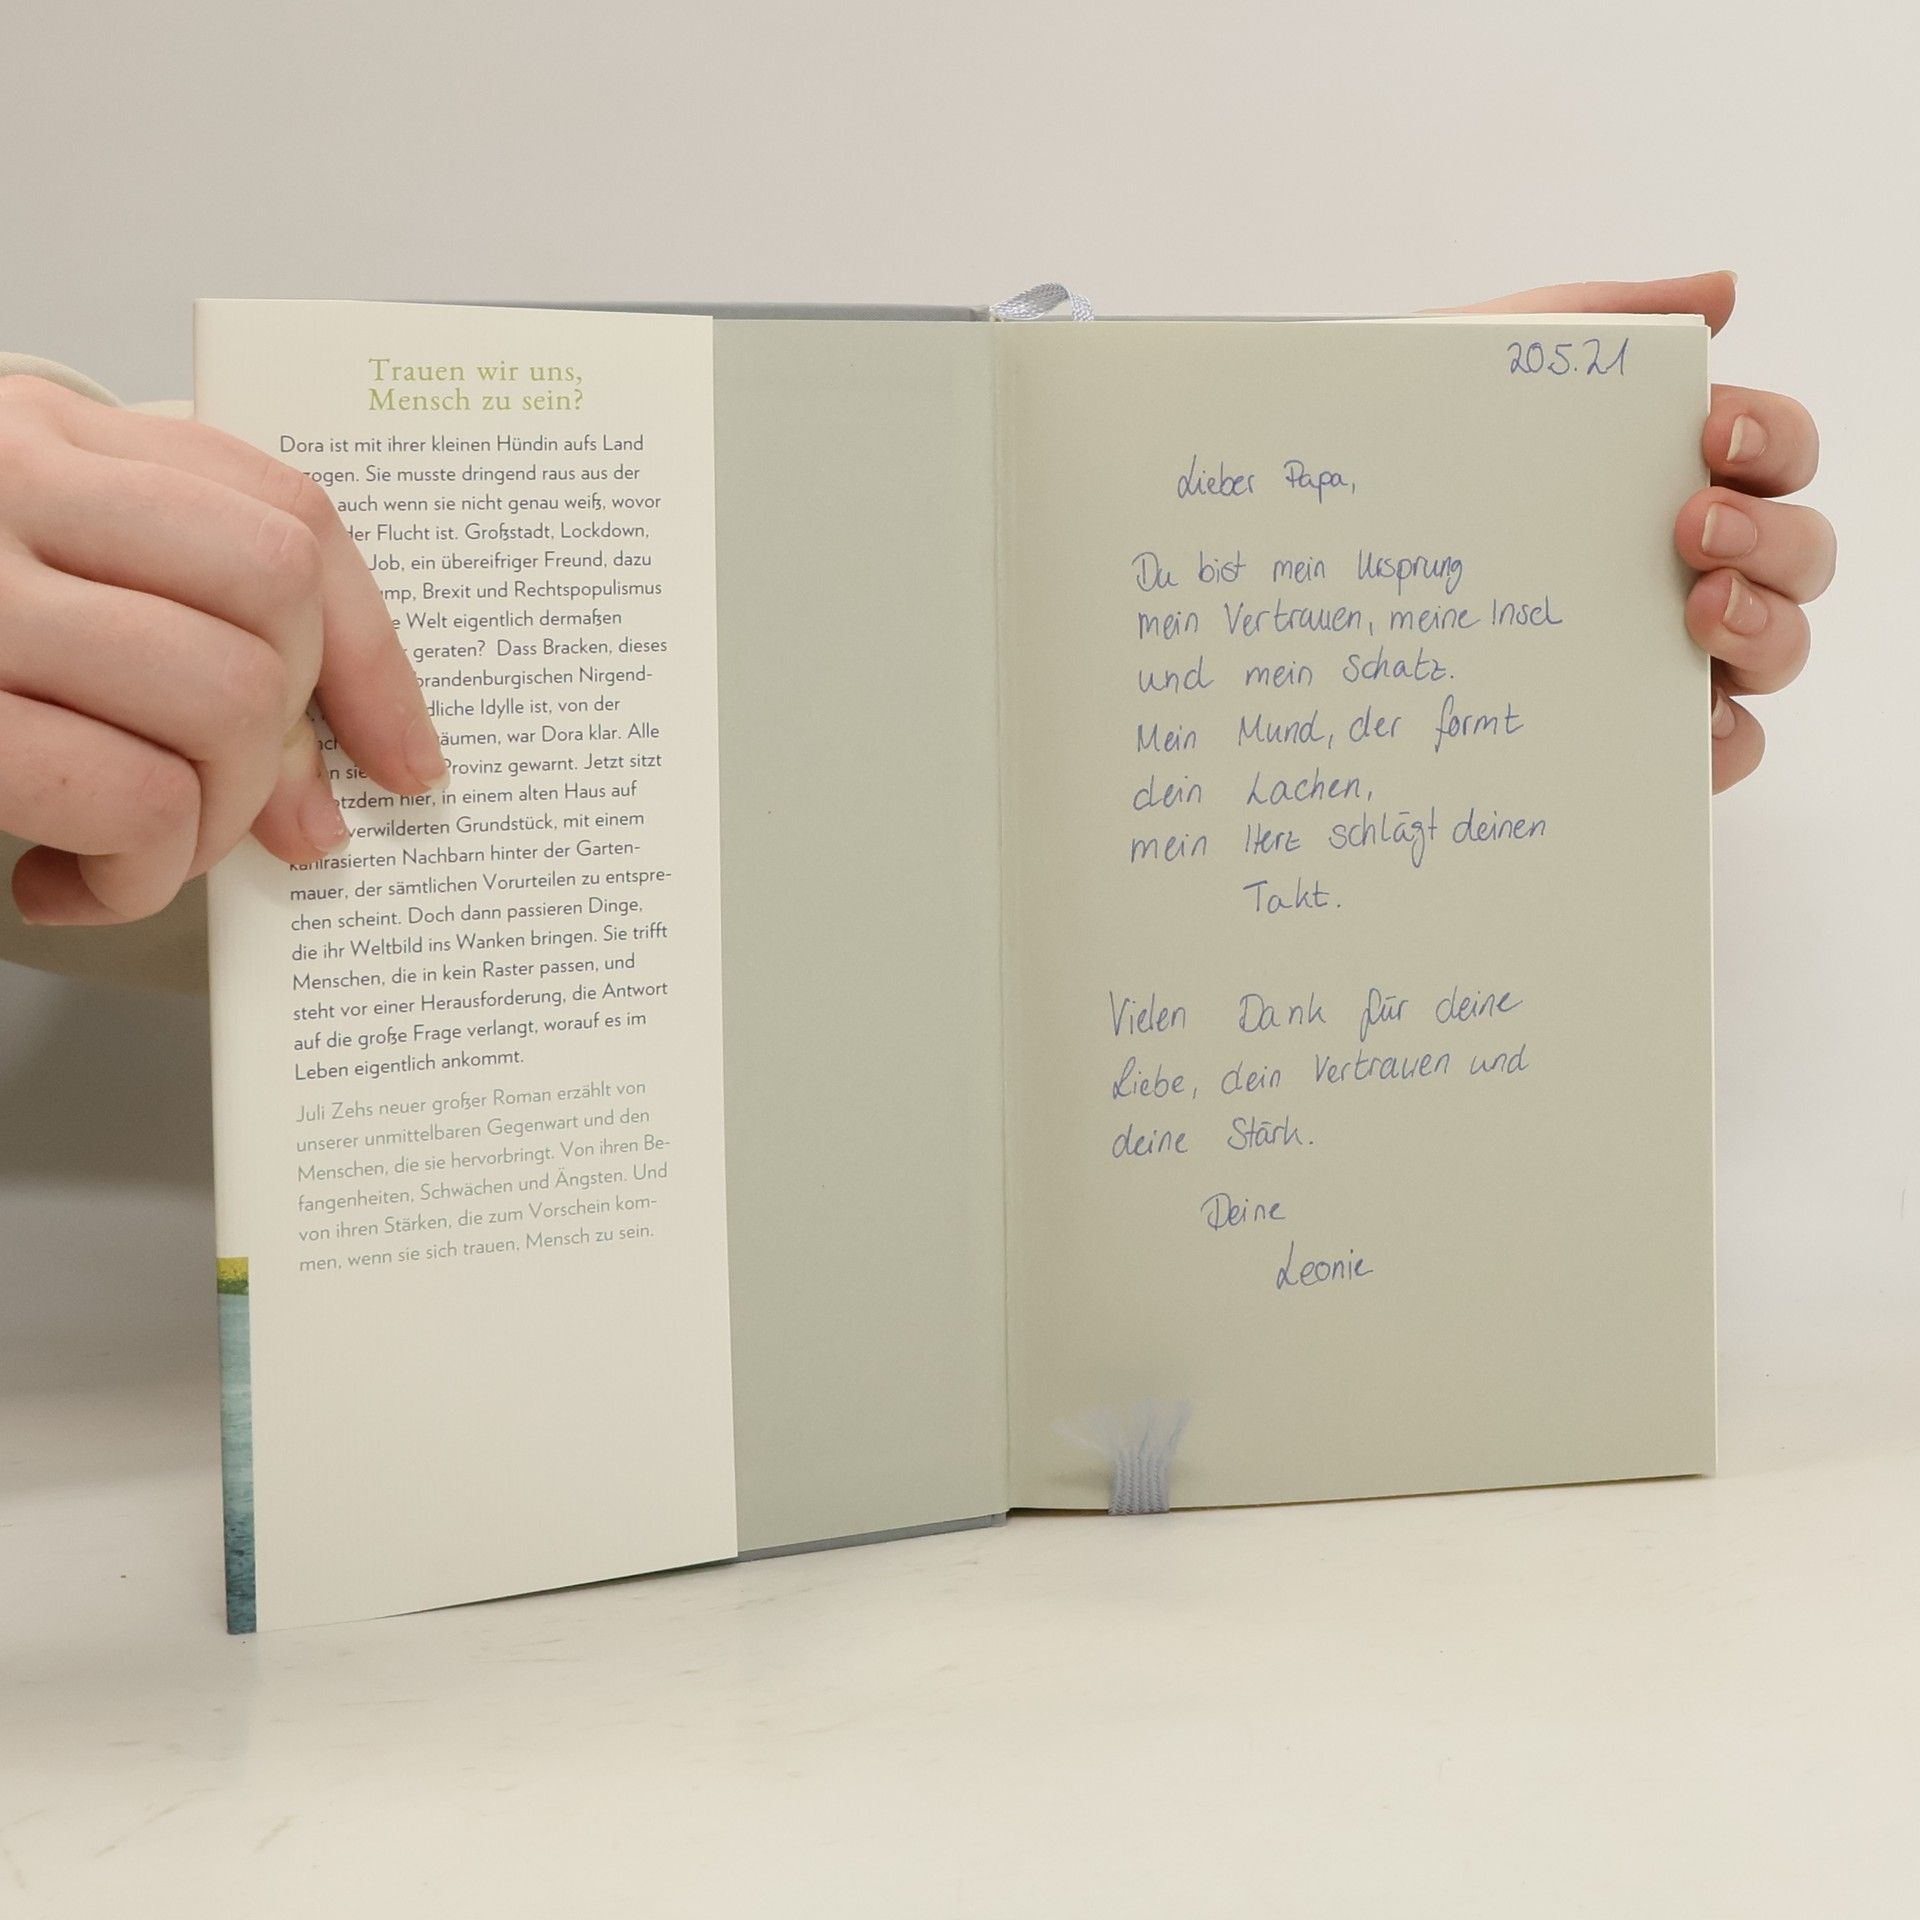 Trauen wir uns,
Mensch zu sein?
Dora ist mit ihrer kleinen Hündin aufs Land
ogen. Sie musste dringend raus aus der
auch wenn sie nicht genau weiß, wovor
der Flucht ist. Großstadt, Lockdown,
Job, ein übereifriger Freund, dazu
mp, Brexit und Rechtspopulismus
e Welt eigentlich dermaßen
geraten? Dass Bracken, dieses
brandenburgischen Nirgend-
dliche Idylle ist, von der
äumen, war Dora klar. Alle
n sie Provinz gewarnt. Jetzt sitzt
otzdem hier, in einem alten Haus auf
verwilderten Grundstück, mit einem
kahlrasierten Nachbarn hinter der Garten-
mauer, der sämtlichen Vorurteilen zu entspre-
chen scheint. Doch dann passieren Dinge,
die ihr Weltbild ins Wanken bringen. Sie trifft
Menschen, die in kein Raster passen, und
steht vor einer Herausforderung, die Antwort
auf die große Frage verlangt, worauf es im
Leben eigentlich ankommt.
Juli Zehs neuer großer Roman erzählt von
unserer unmittelbaren Gegenwart und den
Menschen, die sie hervorbringt. Von ihren Be-
fangenheiten, Schwächen und Ängsten. Und
von ihren Stärken, die zum Vorschein kom-
men, wenn sie sich trauen, Mensch zu sein.
20.5.21
Lieber Papa,
Du bist mein Ursprung
mein Vertrauen, meine Insel
und mein Schatz.
Mein Mund, der formt
dein Lachen,
mein Herz schlägt deinen
Takt.
Vielen Dank für deine
Liebe, dein Vertrauen und
deine Stärk.
Deine
Leonie